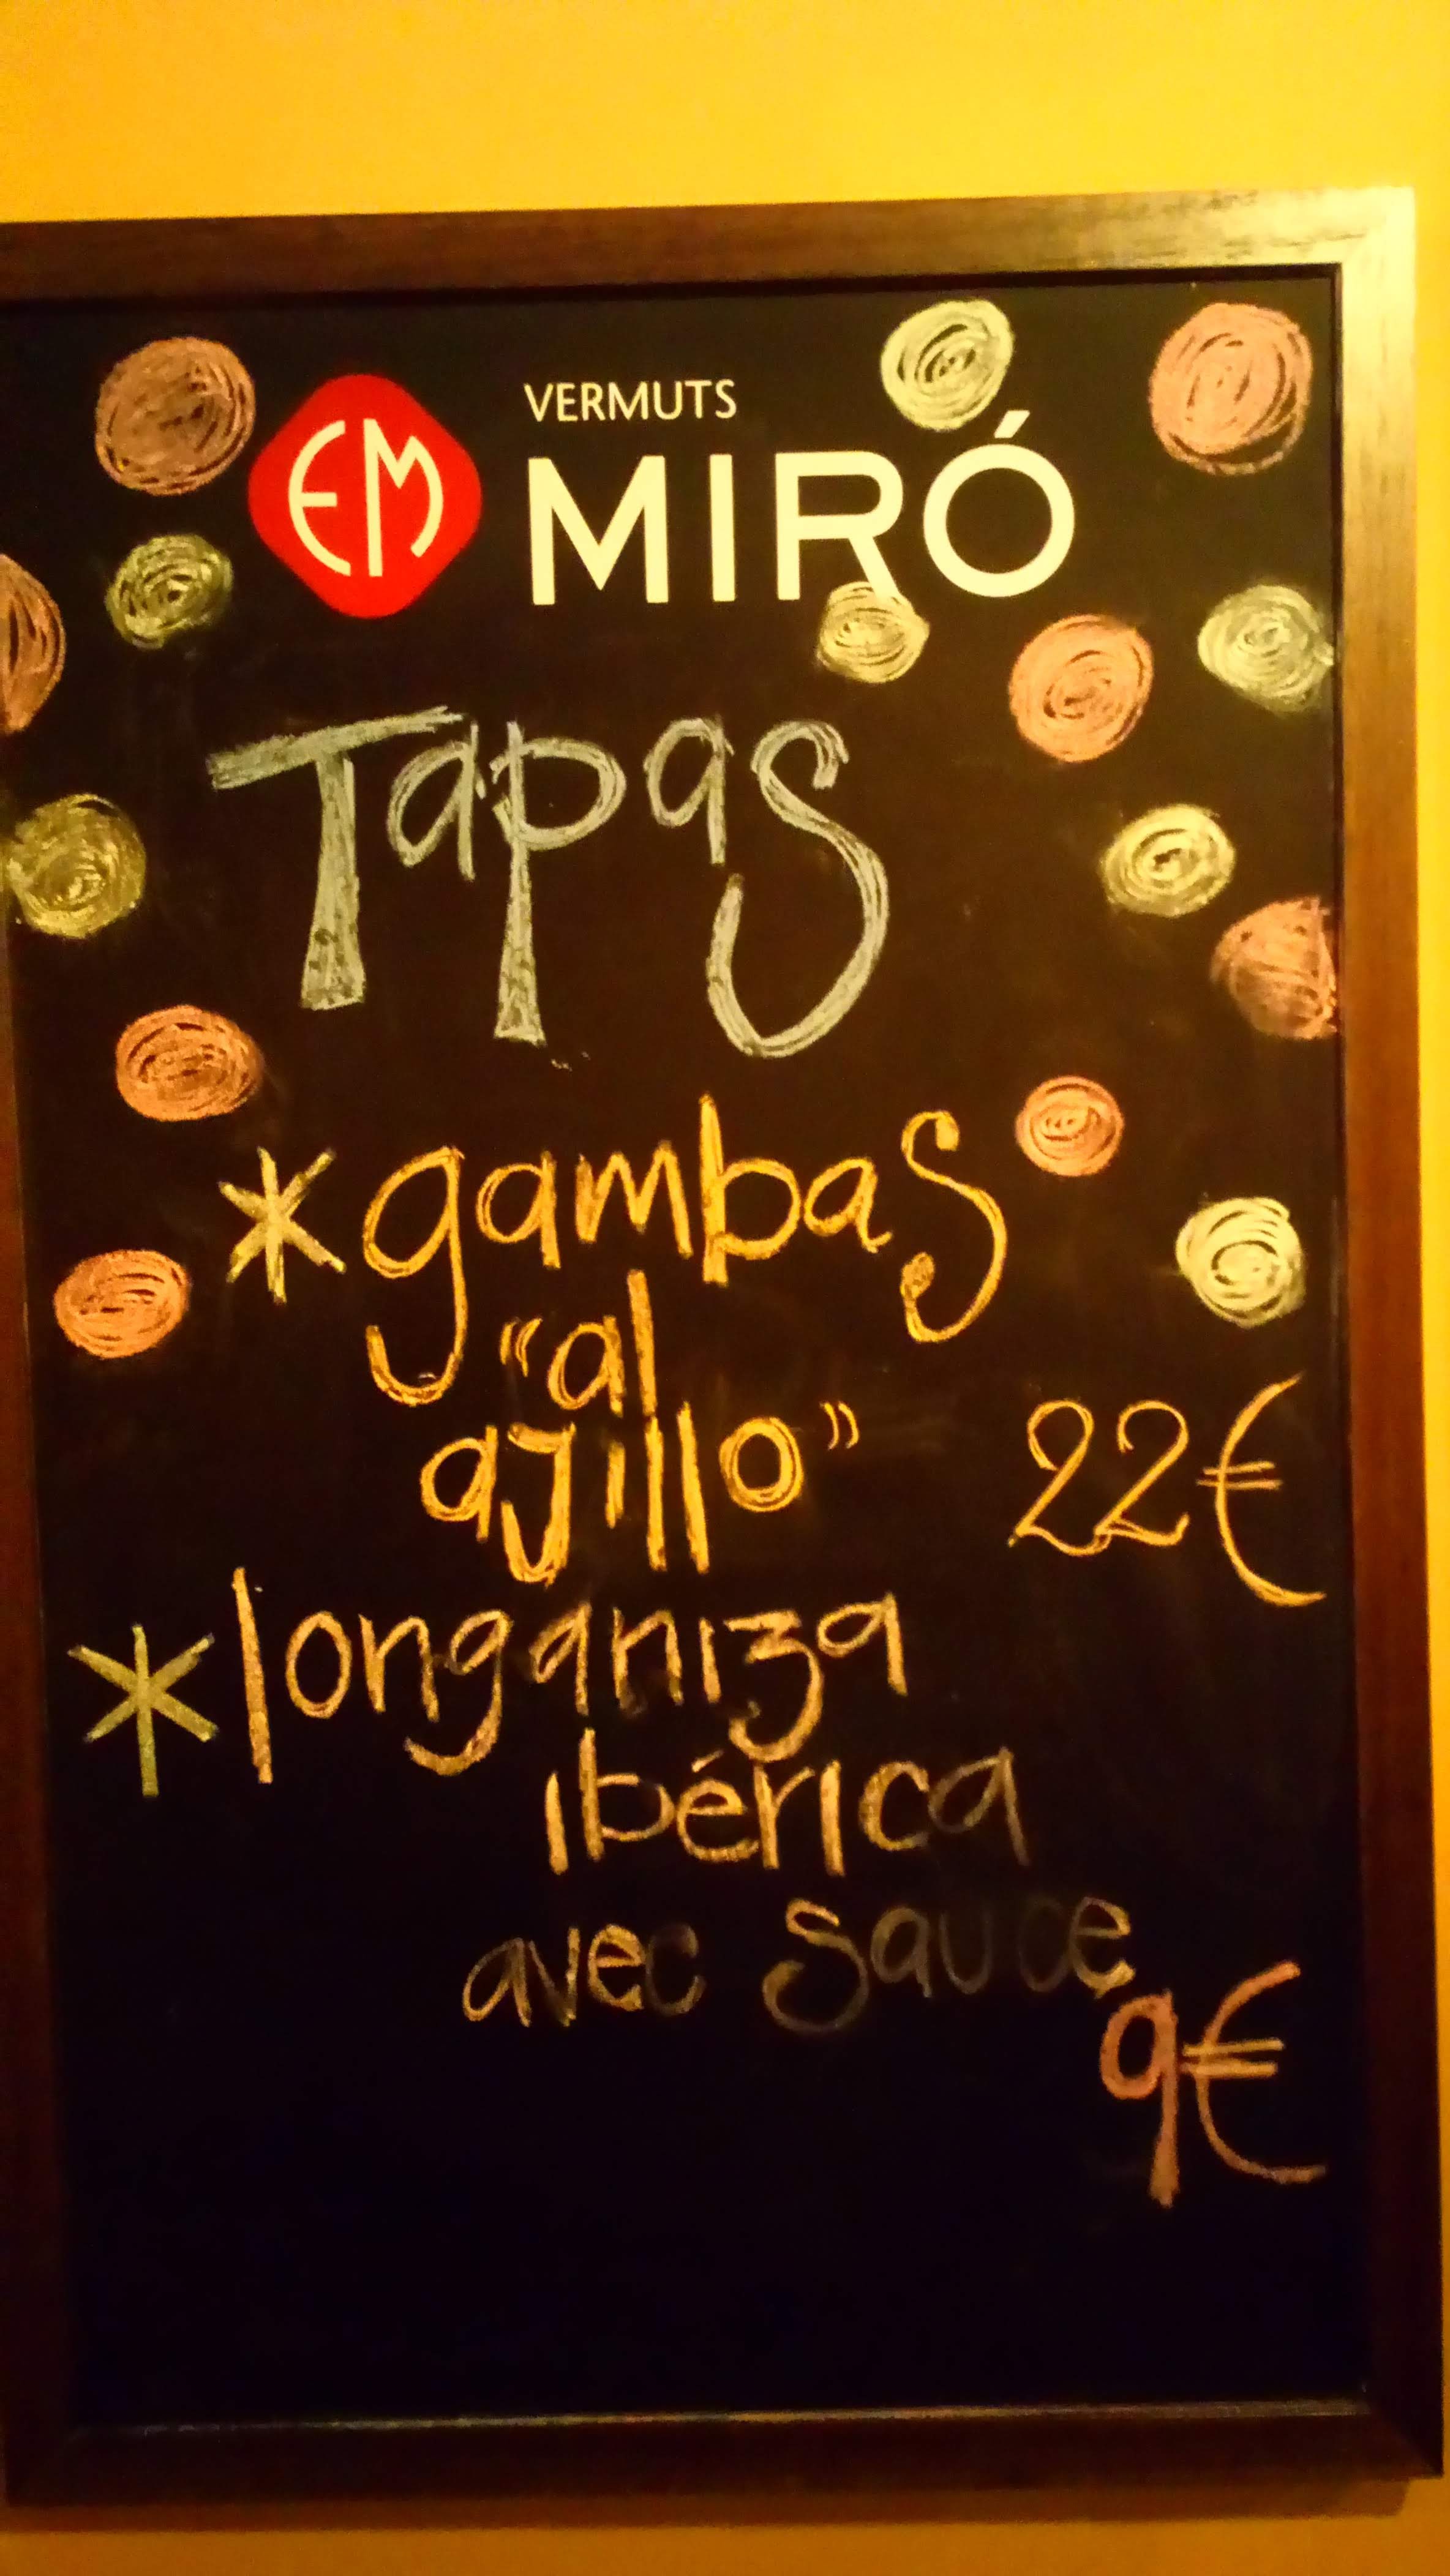 EM
VERMUTS
MIRÓ
Tapas
* gambas
"al
ajillo" 22€
* longaniza
ibérica
avec sauce
9€